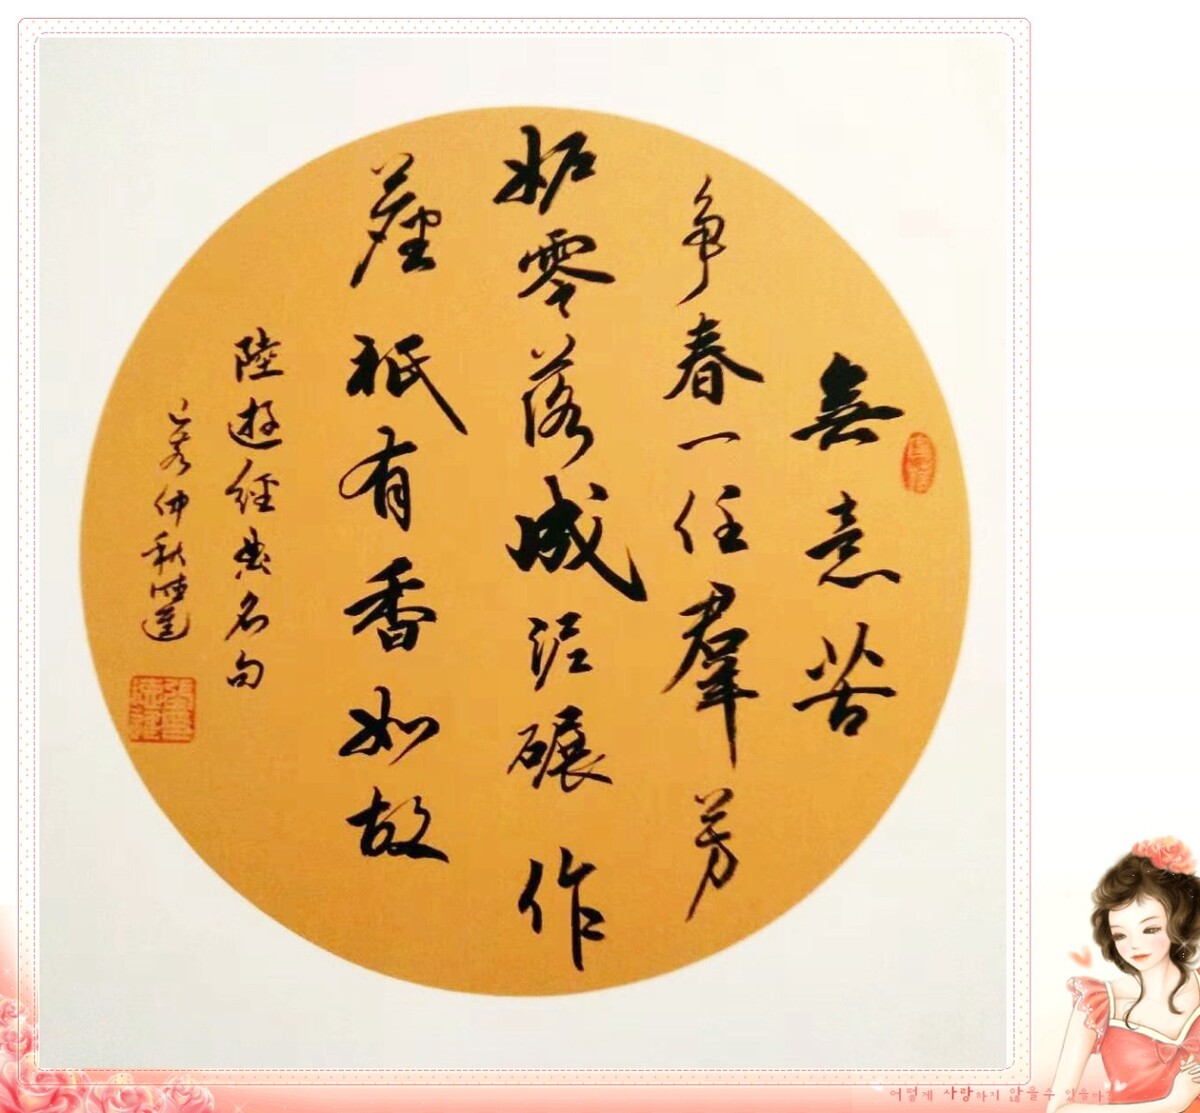 無意苦
争春一任羣芳
妒零落成泥碾作
塵祇有香如故
陸遊經典名句
仲秋
어떻게 사랑하지 않을수 있을까